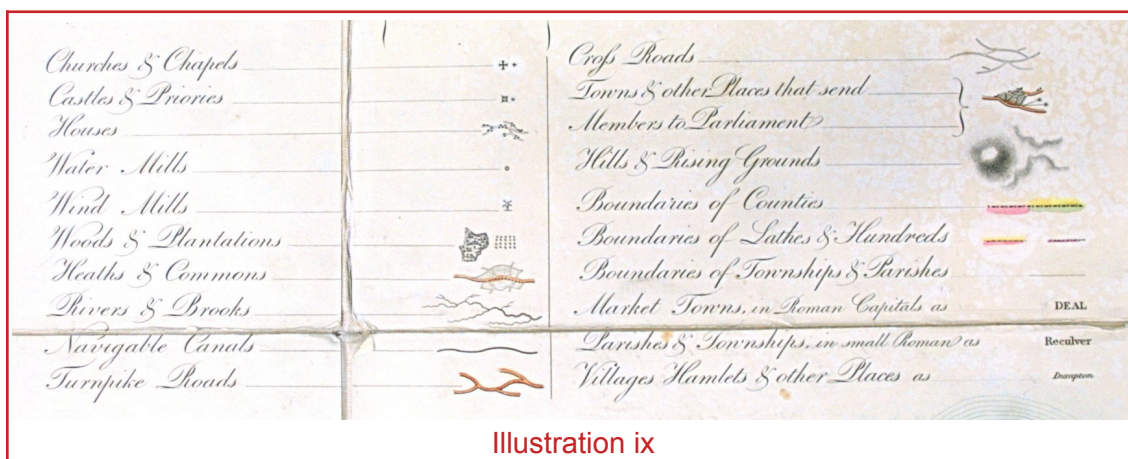 Churches & Chapels
Castles & Priories
Houses
Water Mills
Wind Mills
Woods & Plantations
Heaths & Commons
Rivers & Brooks
Navigable Canals
Turnpike Roads
Croſs Roads
Towns & other Places that send
Members to Parliament
Hills & Rising Grounds
Boundaries of Counties
Boundaries of Lathes & Hundreds
Boundaries of Townships & Parishes
Market Towns, in Roman Capitals as DEAL
Parishes & Townships, in small Roman as Reculver
Villages Hamlets & other Places as Dumpton
Illustration ix